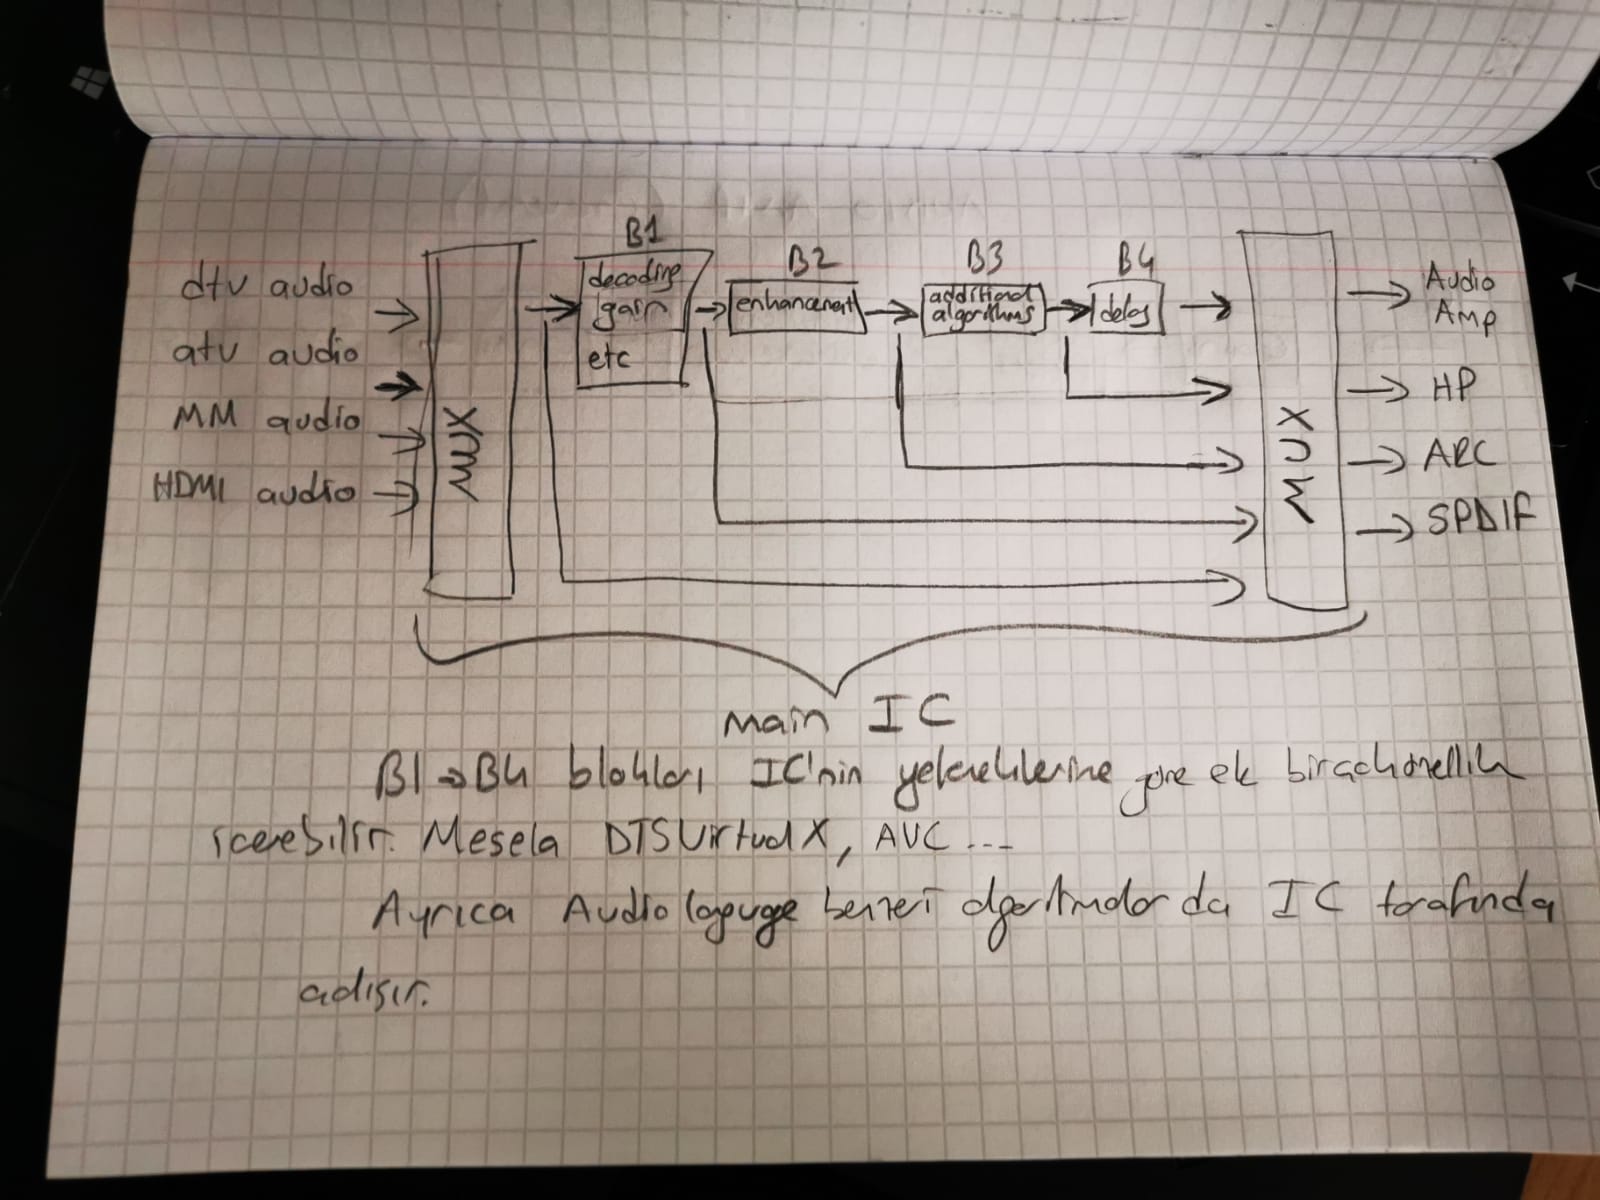 B1
B2
B3
B4
dtv audio
atv audio
MM audio
HDMI audio
MUX
decoding
gain
etc
enhancement
additional
algorithms
delay
MUX
Audio
Amp
HP
ARC
SPDIF
main IC
B1 → B4 blokları IC'nin yeteneklerine göre ek birçok özellik
içerebilir. Mesela DTS Virtual X, AVC ...
Ayrıca Audio language benzeri algoritmalar da IC tarafında